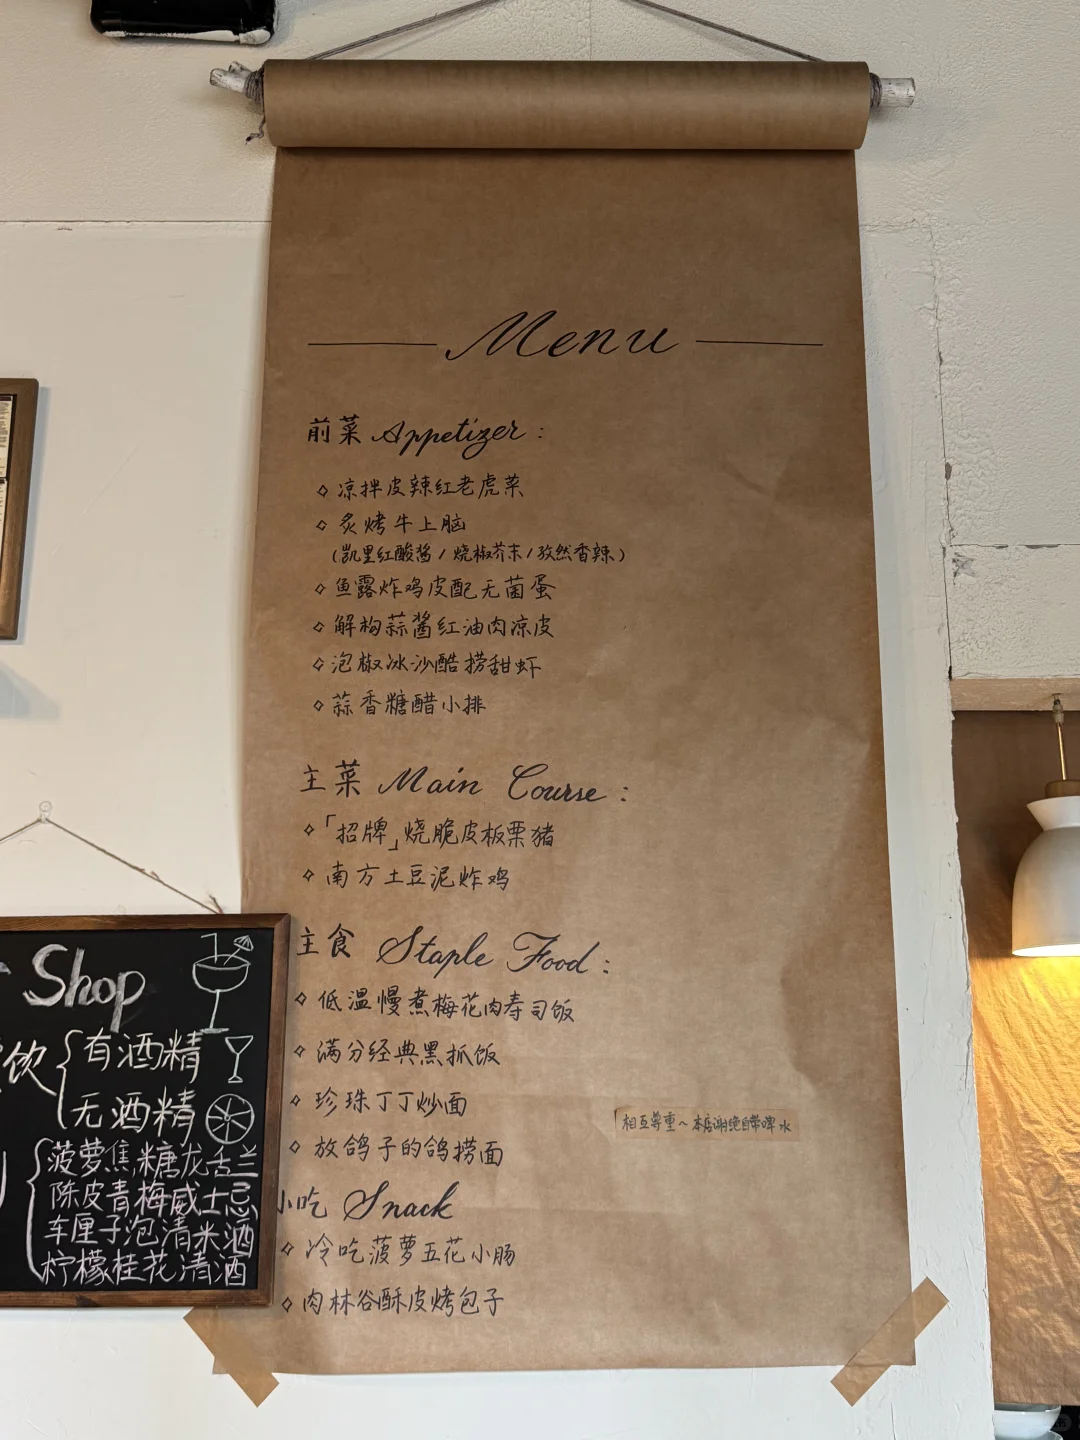 Menu
前菜 Appetizer :
凉拌皮辣红老虎菜
炙烤牛上脑
(凯里红酸酱/烧椒芥末/孜然香辣)
鱼露炸鸡皮配无菌蛋
解构蒜酱红油肉凉皮
泡椒冰沙醋捞甜虾
蒜香糖醋小排
主菜 Main Course :
「招牌」烧脆皮板栗猪
南方土豆泥炸鸡
主食 Staple Food :
低温慢煮梅花肉寿司饭
满分经典黑抓饭
珍珠丁丁炒面
放鸽子的鸽捞面
相互尊重~本店谢绝自带啤水
小吃 Snack
冷吃菠萝五花小肠
肉林谷酥皮烤包子
Shop
饮 { 有酒精
无酒精
菠萝焦糖龙舌兰
陈皮青梅威士忌
车厘子泡清米酒
柠檬桂花清酒